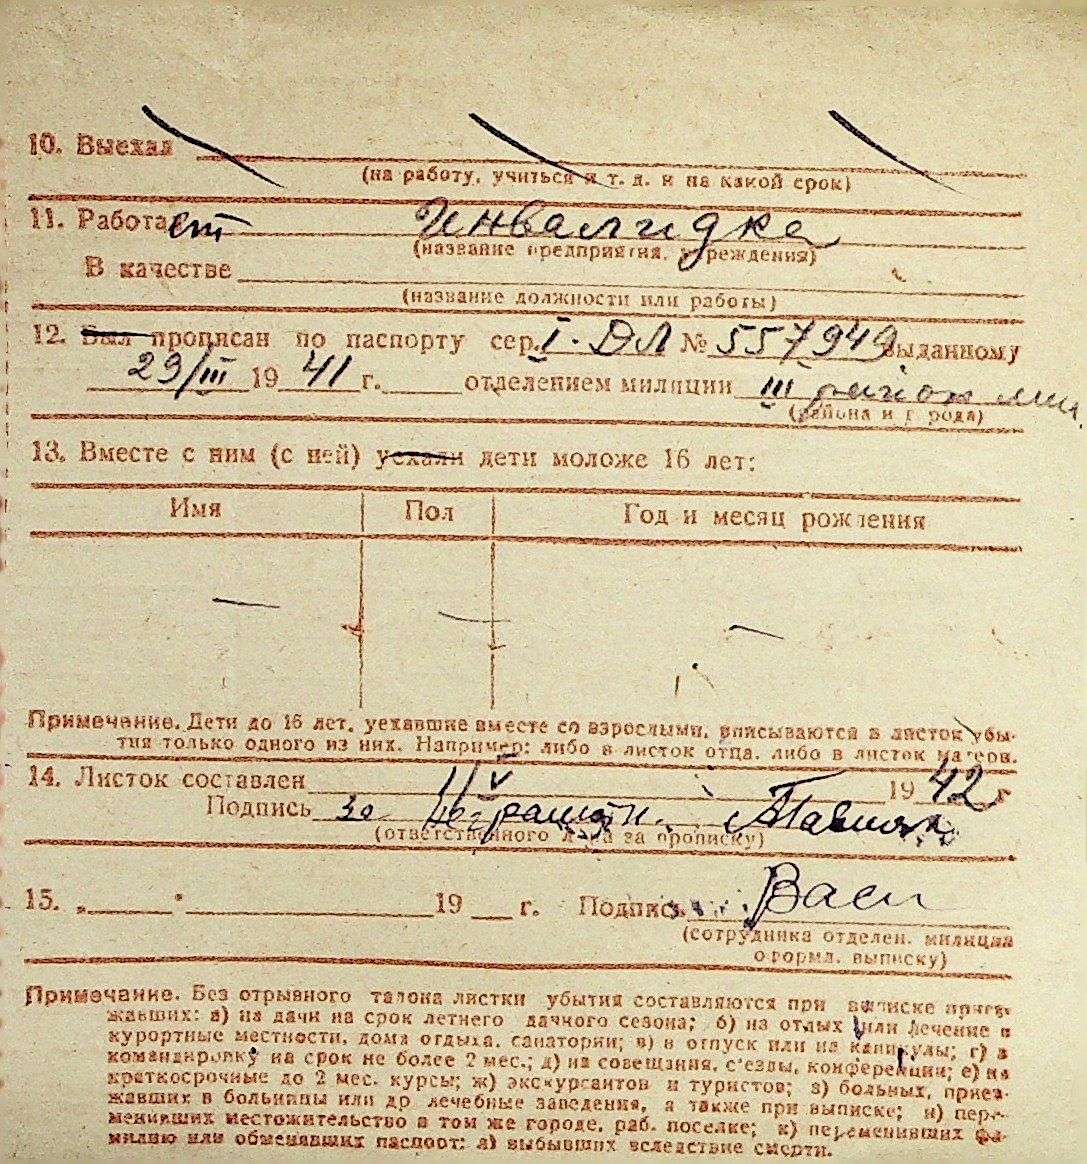 10. Выехал
(на работу, учиться и т. д. и на какой срок)
11. Работает Инвалидка
(название предприятия, учреждения)
В качестве
(название должности или работы)
12. Был прописан по паспорту сер. I · ДЛ № 557949 выданному
29/III 1941 г. отделением милиции III
(района и города)
13. Вместе с ним (с ней) уехали дети моложе 16 лет:
Имя Пол Год и месяц рождения
— — —
Примечание. Дети до 16 лет, уехавшие вместе со взрослыми, вписываются в листок убы-
тия только одного из них. Например: либо в листок отца, либо в листок матери.
14. Листок составлен 11/V 1942 г
Подпись за
(ответственного лица за прописку)
15. „ " 19 г. Подпись Васи
(сотрудника отделен. милиции
оформл. выписку)
Примечание. Без отрывного талона листки убытия составляются при выписке приез-
жавших: а) на дачи на срок летнего дачного сезона; б) на отдых или лечение в
курортные местности, дома отдыха, санатории; в) в отпуск или на каникулы; г) в
командировку на срок не более 2 мес.; д) на совещания, с'езды, конференции; е) на
краткосрочные до 2 мес. курсы; ж) экскурсантов и туристов; з) больных, приез-
жавших в больницы или др лечебные заведения, а также при выписке; и) пере-
менивших местожительство в том же городе, раб. поселке; к) переменивших фа-
милию или обменявших паспорт; л) выбывших вследствие смерти.